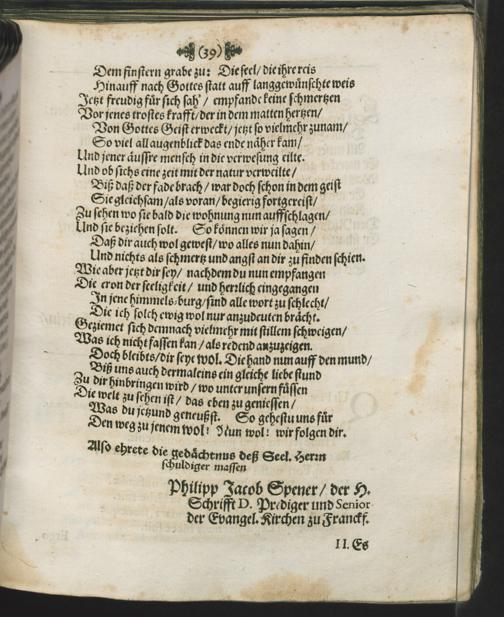 (39)
Dem finstern grabe zu: Die seel/ die ihre reis
Hinauff nach Gottes statt auff langgewünschte weis
Jetzt freudig für sich sah/ empfande keine schmertzen
Vor jenes trostes krafft/ der in dem matten hertzen/
Von Gottes Geist erweckt/ jetzt so vielmehr zunam/
So viel all augenblick das ende näher kam/
Und jener äussre mensch in die verwesung eilte.
Und ob sichs eine zeit mit der natur verweilte/
Biß daß der fade brach/ war doch schon in dem geist
Sie gleichsam/ als voran/ begierig fortgereist/
Zu sehen wo sie bald die wohnung nun auffschlagen/
Und sie beziehen solt. So können wir ja sagen/
Daß dir auch wol gewest/ wo alles nun dahin/
Und nichts als schmertz und angst an dir zu finden schien.
Wie aber jetzt dir sey/ nachdem du nun empfangen
Die cron der seeligkeit/ und herrlich eingegangen
In jene himmels-burg/ sind alle wort zu schlecht/
Die ich solch ewig wol nur anzudeuten brächt.
Geziemet sich demnach vielmehr mit stillem schweigen/
Was ich nicht fassen kan/ als redend anzuzeigen.
Doch bleibts/ dir seye wol. Die hand nun auff den mund/
Biß uns auch dermaleins ein gleiche liebe stund
Zu dir hinbringen wird/ wo unter unsern füssen
Die welt zu sehen ist/ das eben zu geniessen/
Was du jetzund geneußst. So gehestu uns für
Den weg zu jenem wol! Nun wol! wir folgen dir.
Also ehrete die gedächtnus deß Seel. Herrn
schuldiger massen
Philipp Jacob Spener/ der H.
Schrifft D. Prediger und Senior
der Evangel. Kirchen zu Franckf.
II. Es